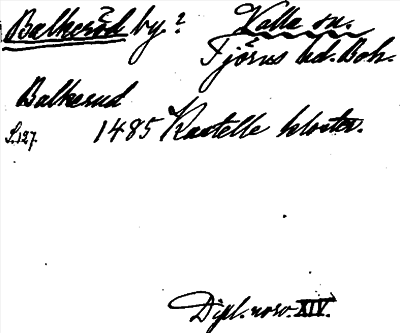 Balkeröd by? Valla sn.
Tjörns hd. Boh.
Balkerud
S.127. 1485 Kastelle kloster.
Dipl. norv. XIV.